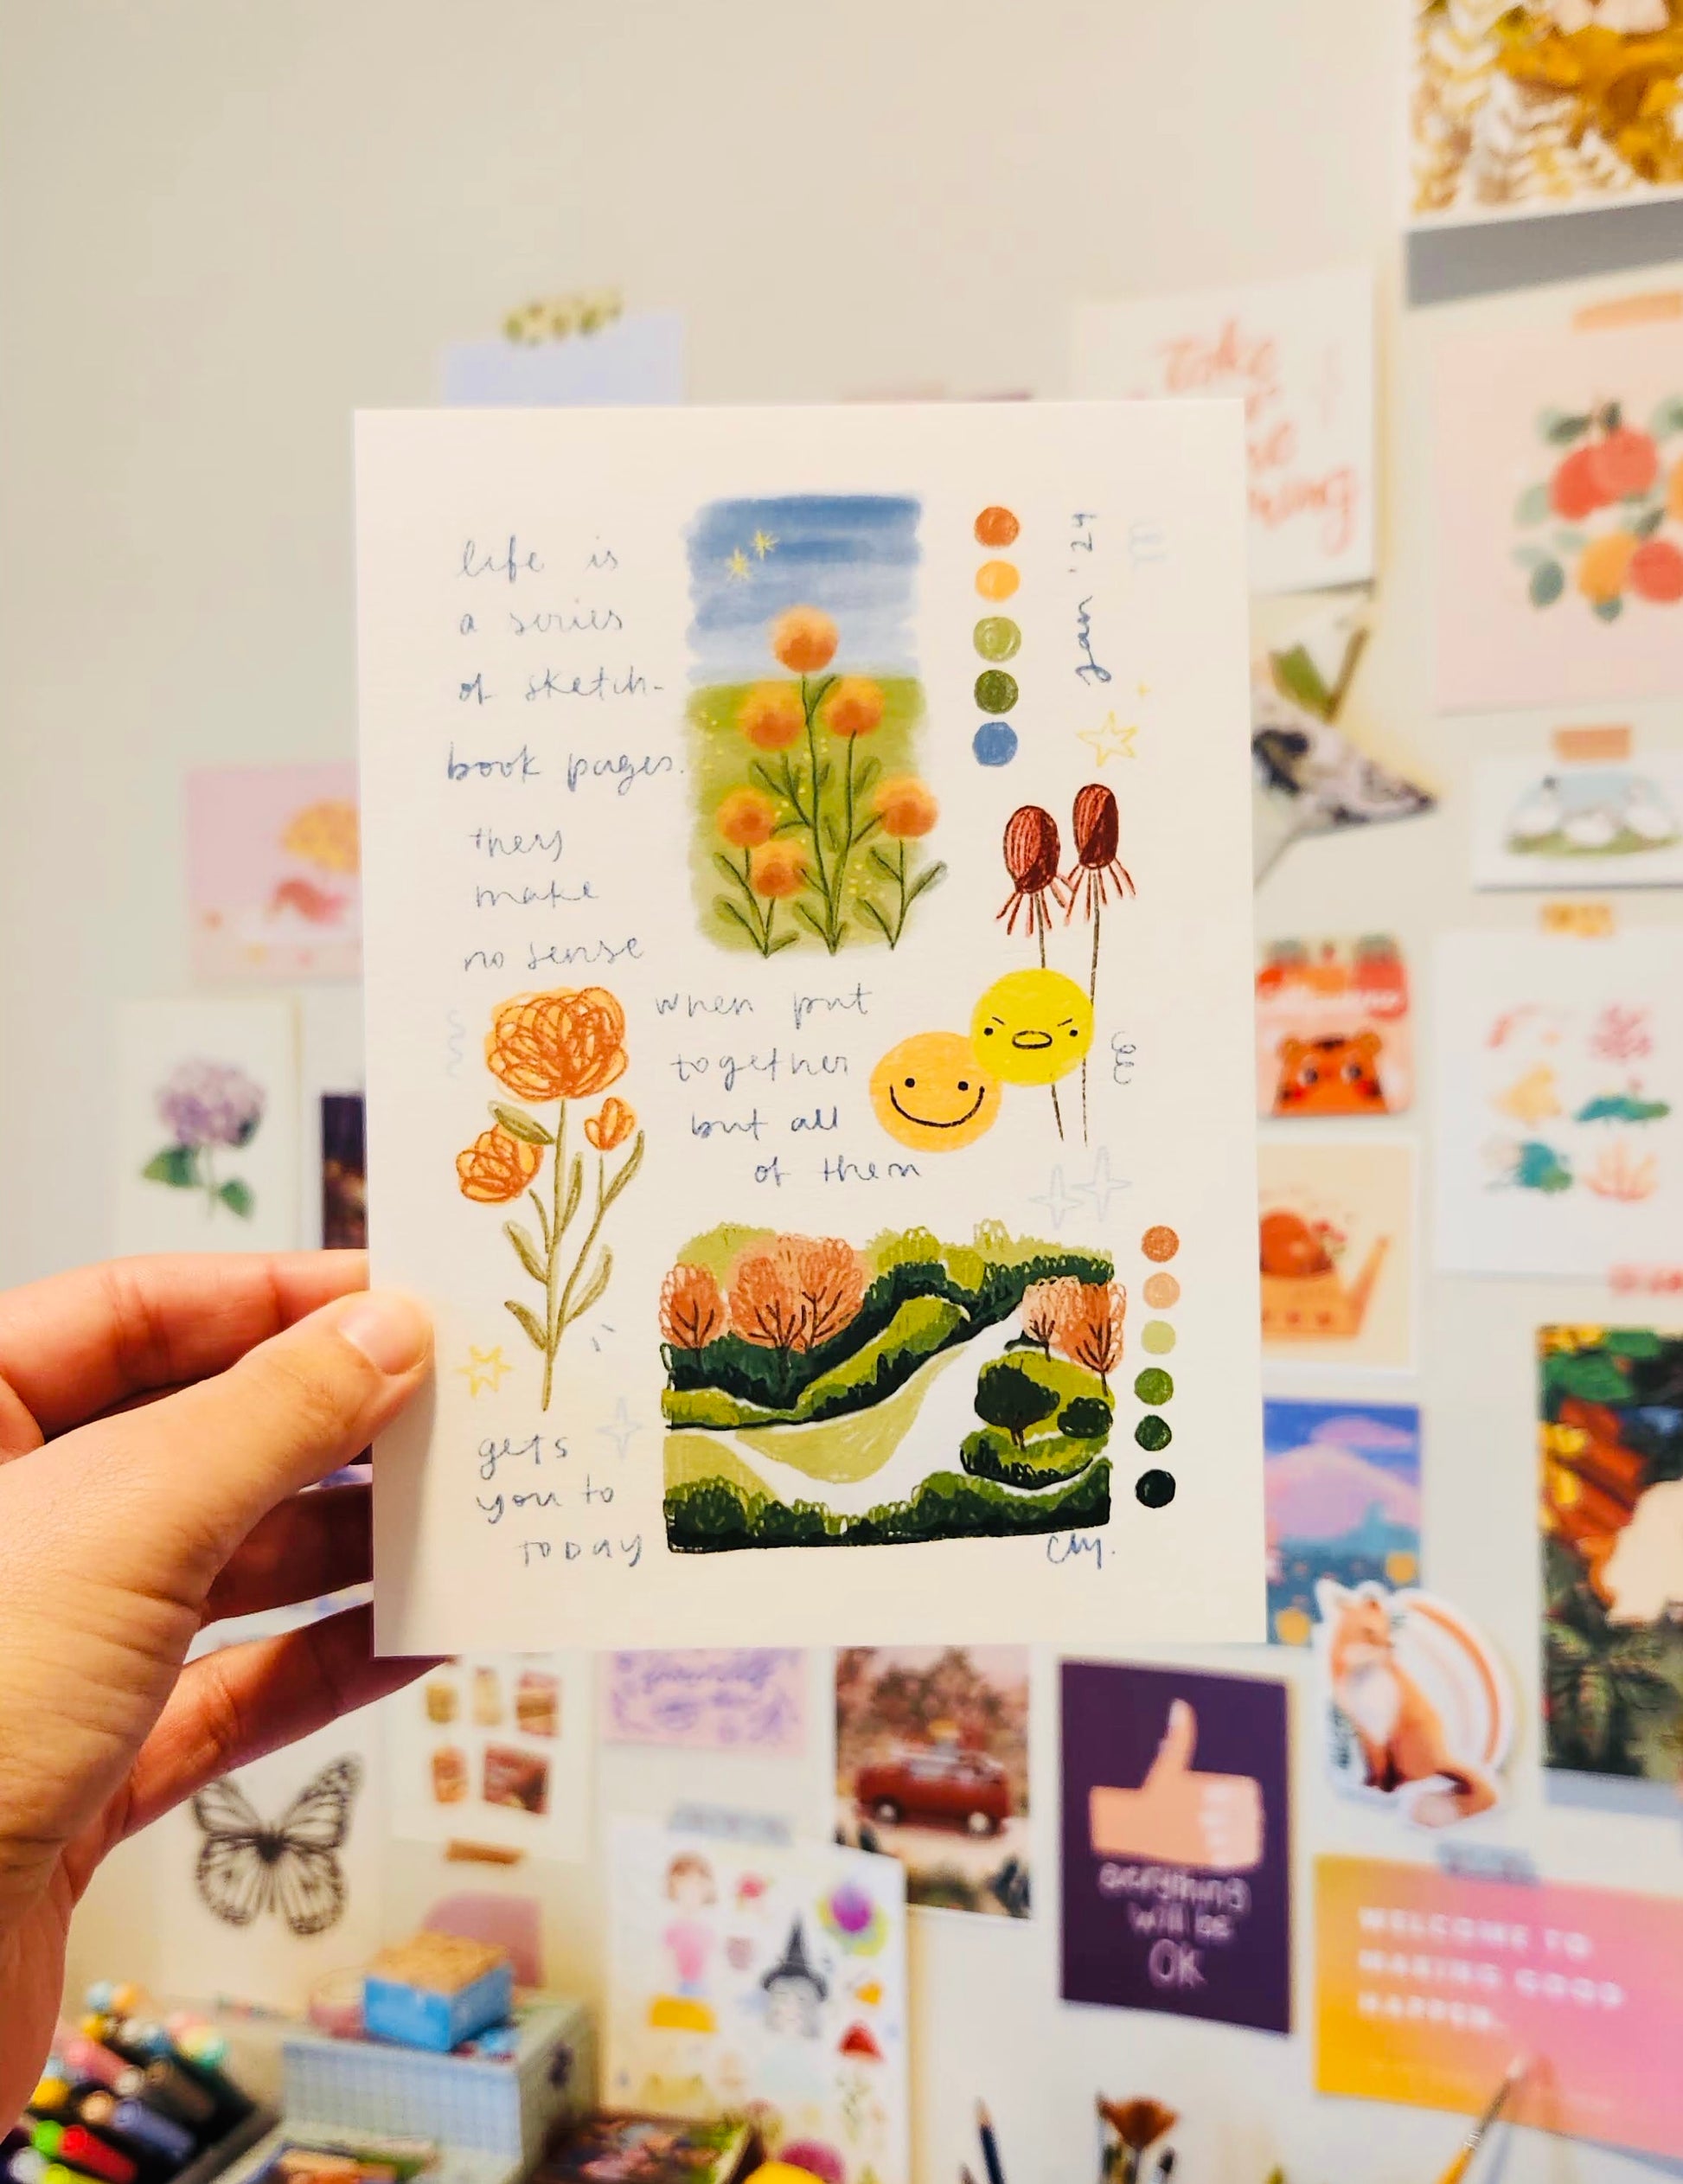 life is
a series
of sketch-
book pages.
they
make
no sense
when put
together
but all
of them
gets
you to
TODAY
Jan '24
Chy.
everything
will be
OK
WELCOME TO
MAKING GOOD
HAPPEN.